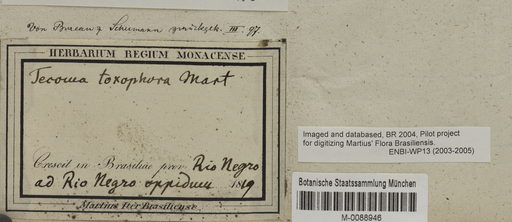 Von Bureau & Schumann zurückgek. III. 97.
HERBARIUM REGIUM MONACENSE
Tecoma toxophora Mart
Crescit in Brasiliae prov. Rio Negro
ad Rio Negro oppidum 1819
Martius Iter Brasiliense.
Imaged and databased, BR 2004, Pilot project
for digitizing Martius' Flora Brasiliensis.
ENBI-WP13 (2003-2005)
Botanische Staatssammlung München
M-0088946